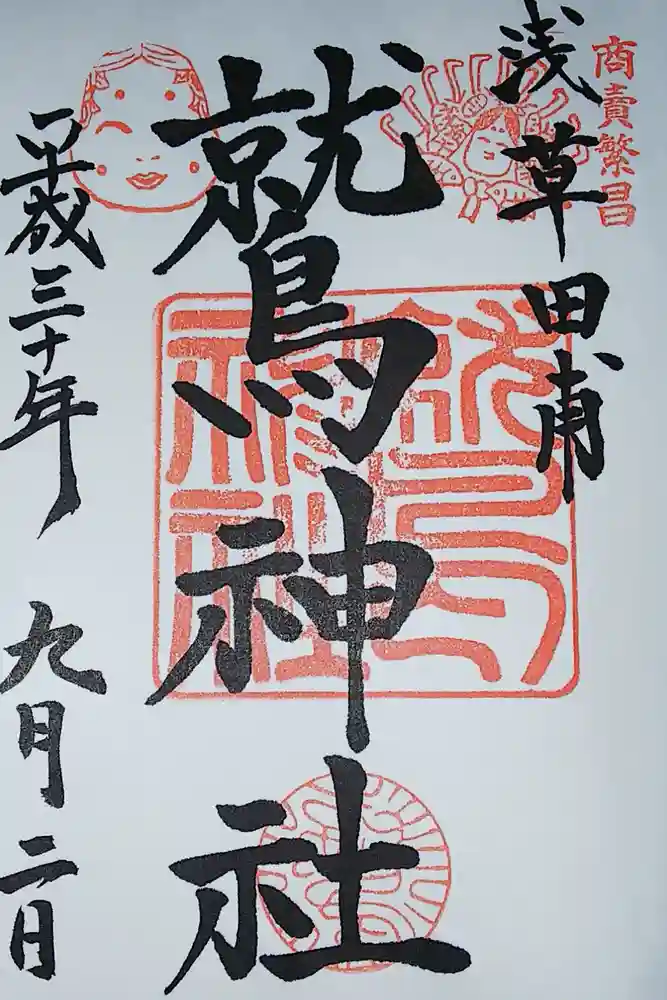 商賣繁昌
浅草田甫
鷲神社
平成三十年 九月二日
鷲神社